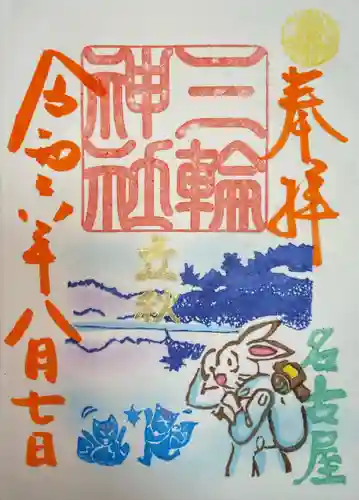 奉拝
三輪
神社
立秋
令和六年八月七日
名古屋